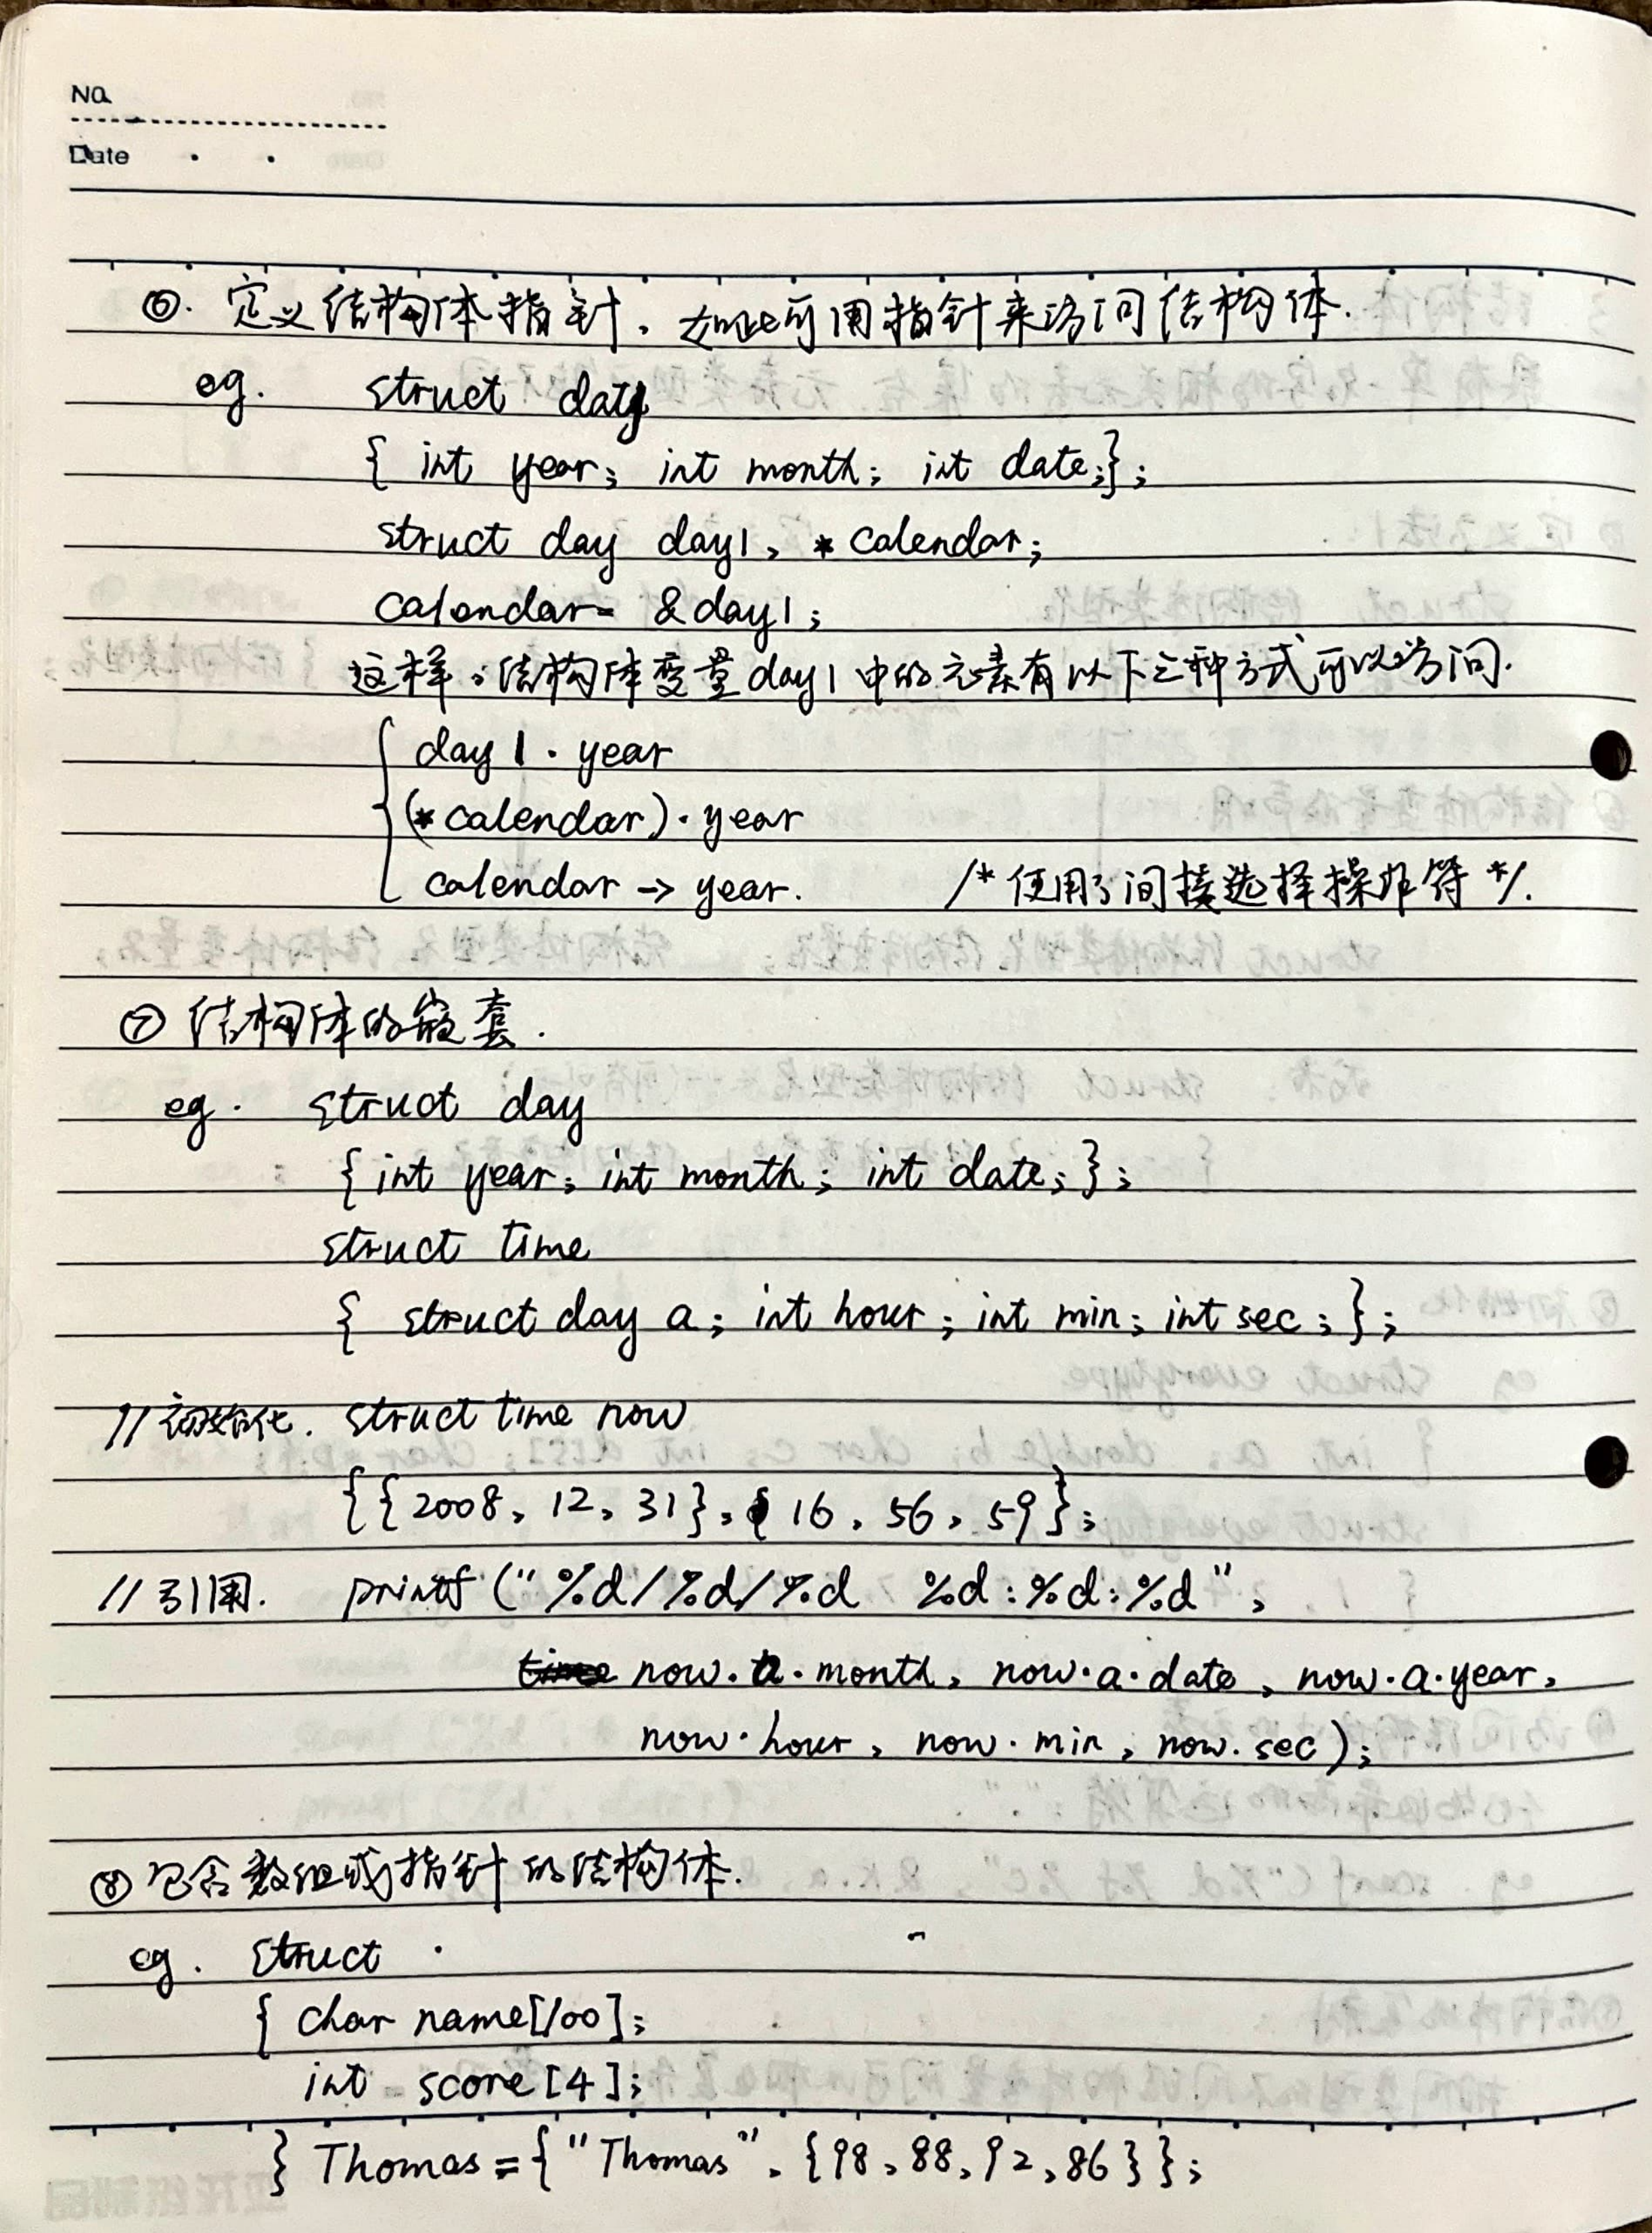 No.
Date
⑥. 定义结构体指针. 如此可用指针来访问结构体.
eg. struct day
{ int year; int month; int date;};
struct day day1, *calendar;
calendar= &day1;
这样,结构体变量day1中的元素有以下三种方式可以访问.
day1.year
(*calendar).year
calendar -> year. /*使用了间接选择操作符*/.
⑦ 结构体的嵌套.
eg. struct day
{ int year; int month; int date; };
struct time
{ struct day a; int hour; int min; int sec; };
//初始化. struct time now
{{2008, 12, 31}, 16, 56, 59};
//引用. printf ("%d/%d/%d %d:%d:%d",
time now.a.month, now.a.date, now.a.year,
now.hour, now.min, now.sec);
⑧ 包含数组或指针的结构体.
eg. struct
{ char name[100];
int score[4];
} Thomas={"Thomas", {98,88,92,86}};